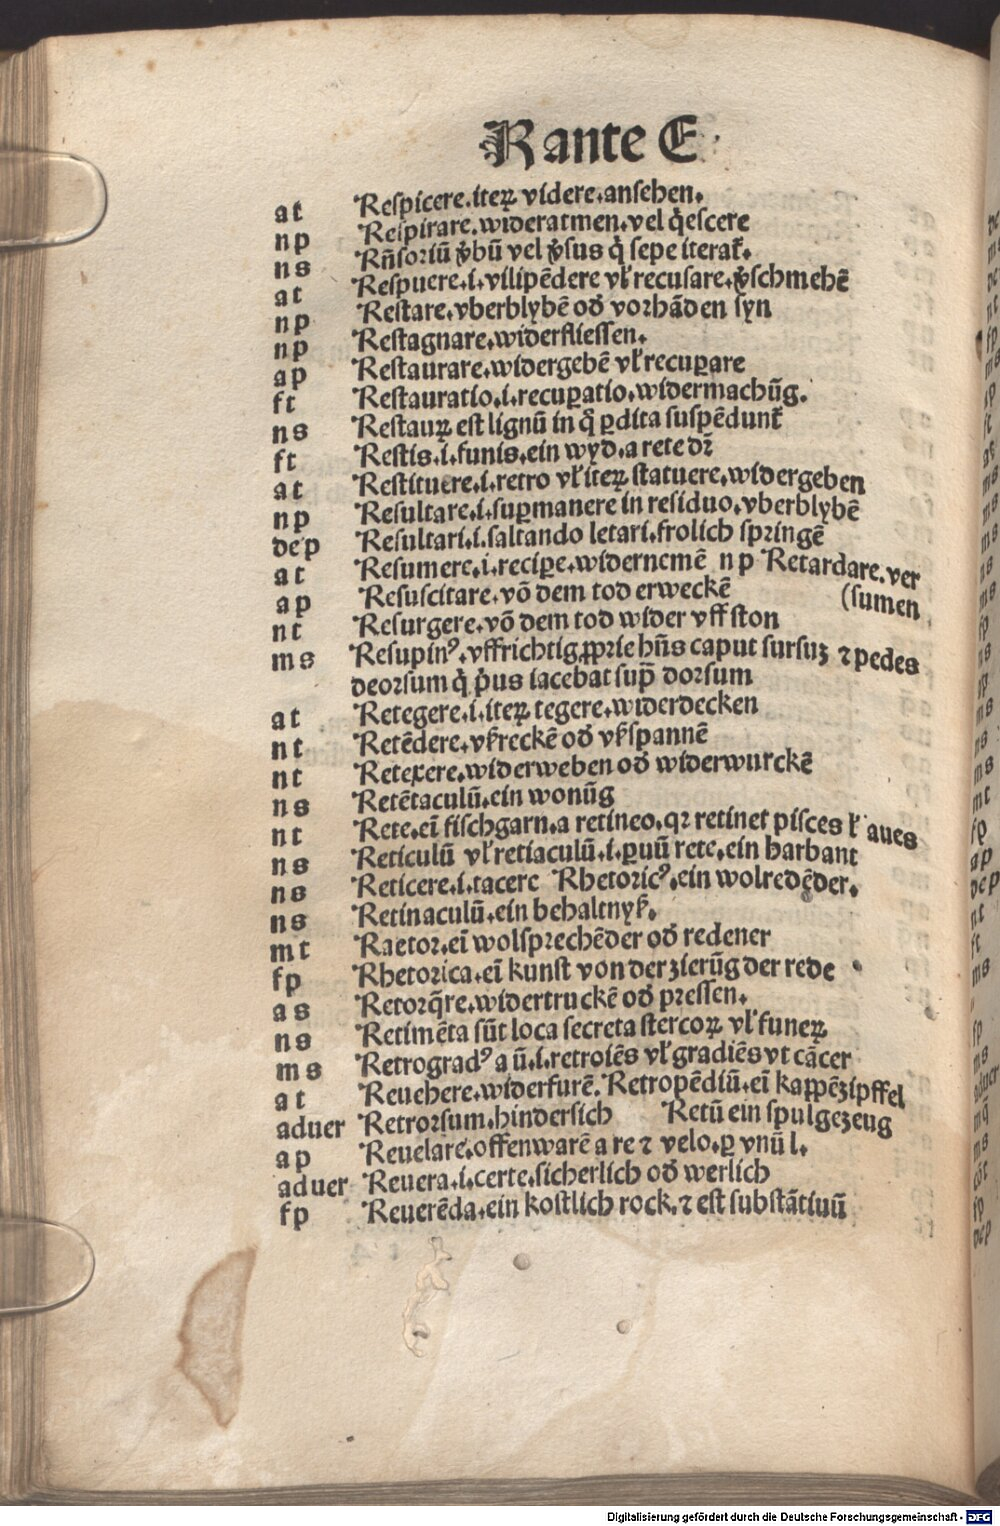 R ante E
at Respicere.iteꝝ videre.ansehen.
np Respirare.wideratmen.vel q̇escere
ns Rn̄soriū v̓bū vel v̓sus q̇ sepe iterat̉.
at Respuere.i.vilipēdere vl̓ recusare.v̓schmehē
np Restare.vberblybē od̓ vorhāden syn
np Restagnare.widerfliessen.
ap Restaurare.widergebē vl̓ recuꝑare
ft Restauratio.i.recuꝑatio.widermachūg.
ns Restauꝝ est lignū in q̊ ꝑdita suspēdunt̉
ft Restis.i.funis.ein wyd.a rete dr̄
at Restituere.i.retro vl̓ iteꝝ statuere.widergeben
np Resultare.i.suꝑmanere in residuo.vberblybē
dep Resultari.i.saltando letari.frolich springē
at Resumere.i.reciꝑe.widernemē np Retardare.ver
ap Resuscitare.vō dem tod erweckē (sumen
nt Resurgere.vō dem tod wider vff ston
ms Resupinꝰ.vffrichtig,ꝓprie hn̄s caput sursuꝫ ⁊ pedes
deorsum q̇ p̓us iacebat sup̄ dorsum
at Retegere.i.iteꝝ tegere.widerdecken
nt Retēdere.vk̓reckē od̓ vk̓spannē
nt Retexere.widerweben od̓ widerwurckē
ns Retētaculū.ein wonūg
nt Rete.eī fischgarn.a retineo.qꝛ retinet pisces l̓ aues
ns Reticulū vl̓ retiaculū.i.ꝑuū rete.ein harbant
ns Reticere.i.tacere Rhetoricꝰ.ein wolredēder.
ns Retinaculū.ein behaltnyß.
mt Raetor.eī wolsprechēder od̓ redener
fp Rhetorica.eī kunst von der zierūg der rede
as Retorq̄re.widertruckē od̓ pressen.
ns Retimēta sūt loca secreta stercoꝝ vl̓ funeꝝ
ms Retrogradꝰ a ū.i.retroiēs vl̓ gradiēs vt cācer
at Reuehere.widerfurē. Retropēdiū.eī kappēzipffel
aduer Retrorsum.hindersich Retū ein spulgezeug
ap Reuelare.offenwarē a re ⁊ velo.ꝑ vnū l.
aduer Reuera.i.certe.sicherlich od̓ werlich
fp Reuerēda.ein kostlich rock.⁊ est substātiuū
Digitalisierung gefördert durch die Deutsche Forschungsgemeinschaft - DFG